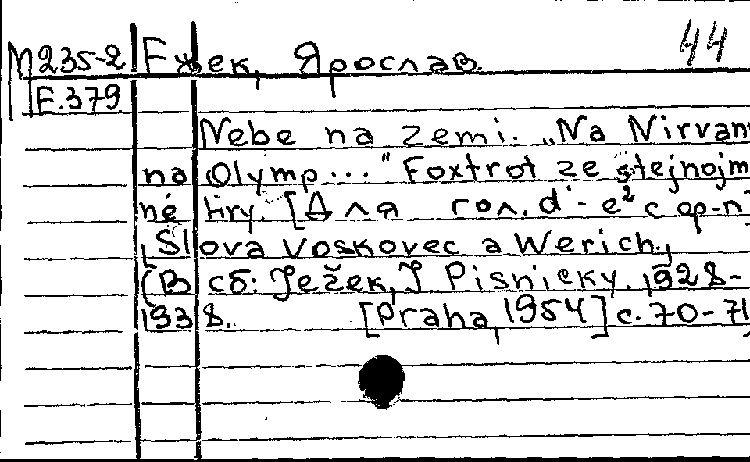 44
М235-2 Ежек, Ярослав.
Е.379
Nebe na zemi. „Na Nirvan
na Olymp..." Foxtrot ze stejnojm
né hry. [Для гол. d'-e² с ор-п
Slova Voskovec a Werich.,
(В сб: Ježek, J Pisnicky. 1928-
1938. [Praha, 1954] с. 70-71